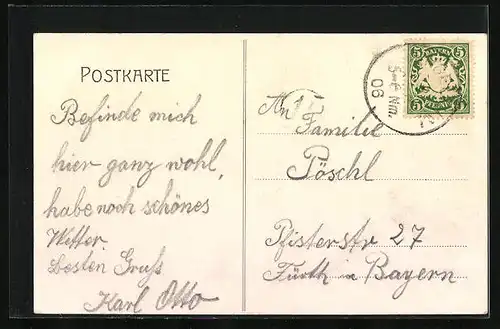 POSTKARTE
Befinde mich
hier ganz wohl,
habe noch schönes
Wetter.
Besten Gruß
Karl Otto
5 BAYERN 5
5 PFENNIG 5
5-6 Nm.
06
An
Familie
Pöschl
Pfisterstr 27
Fürth in Bayern